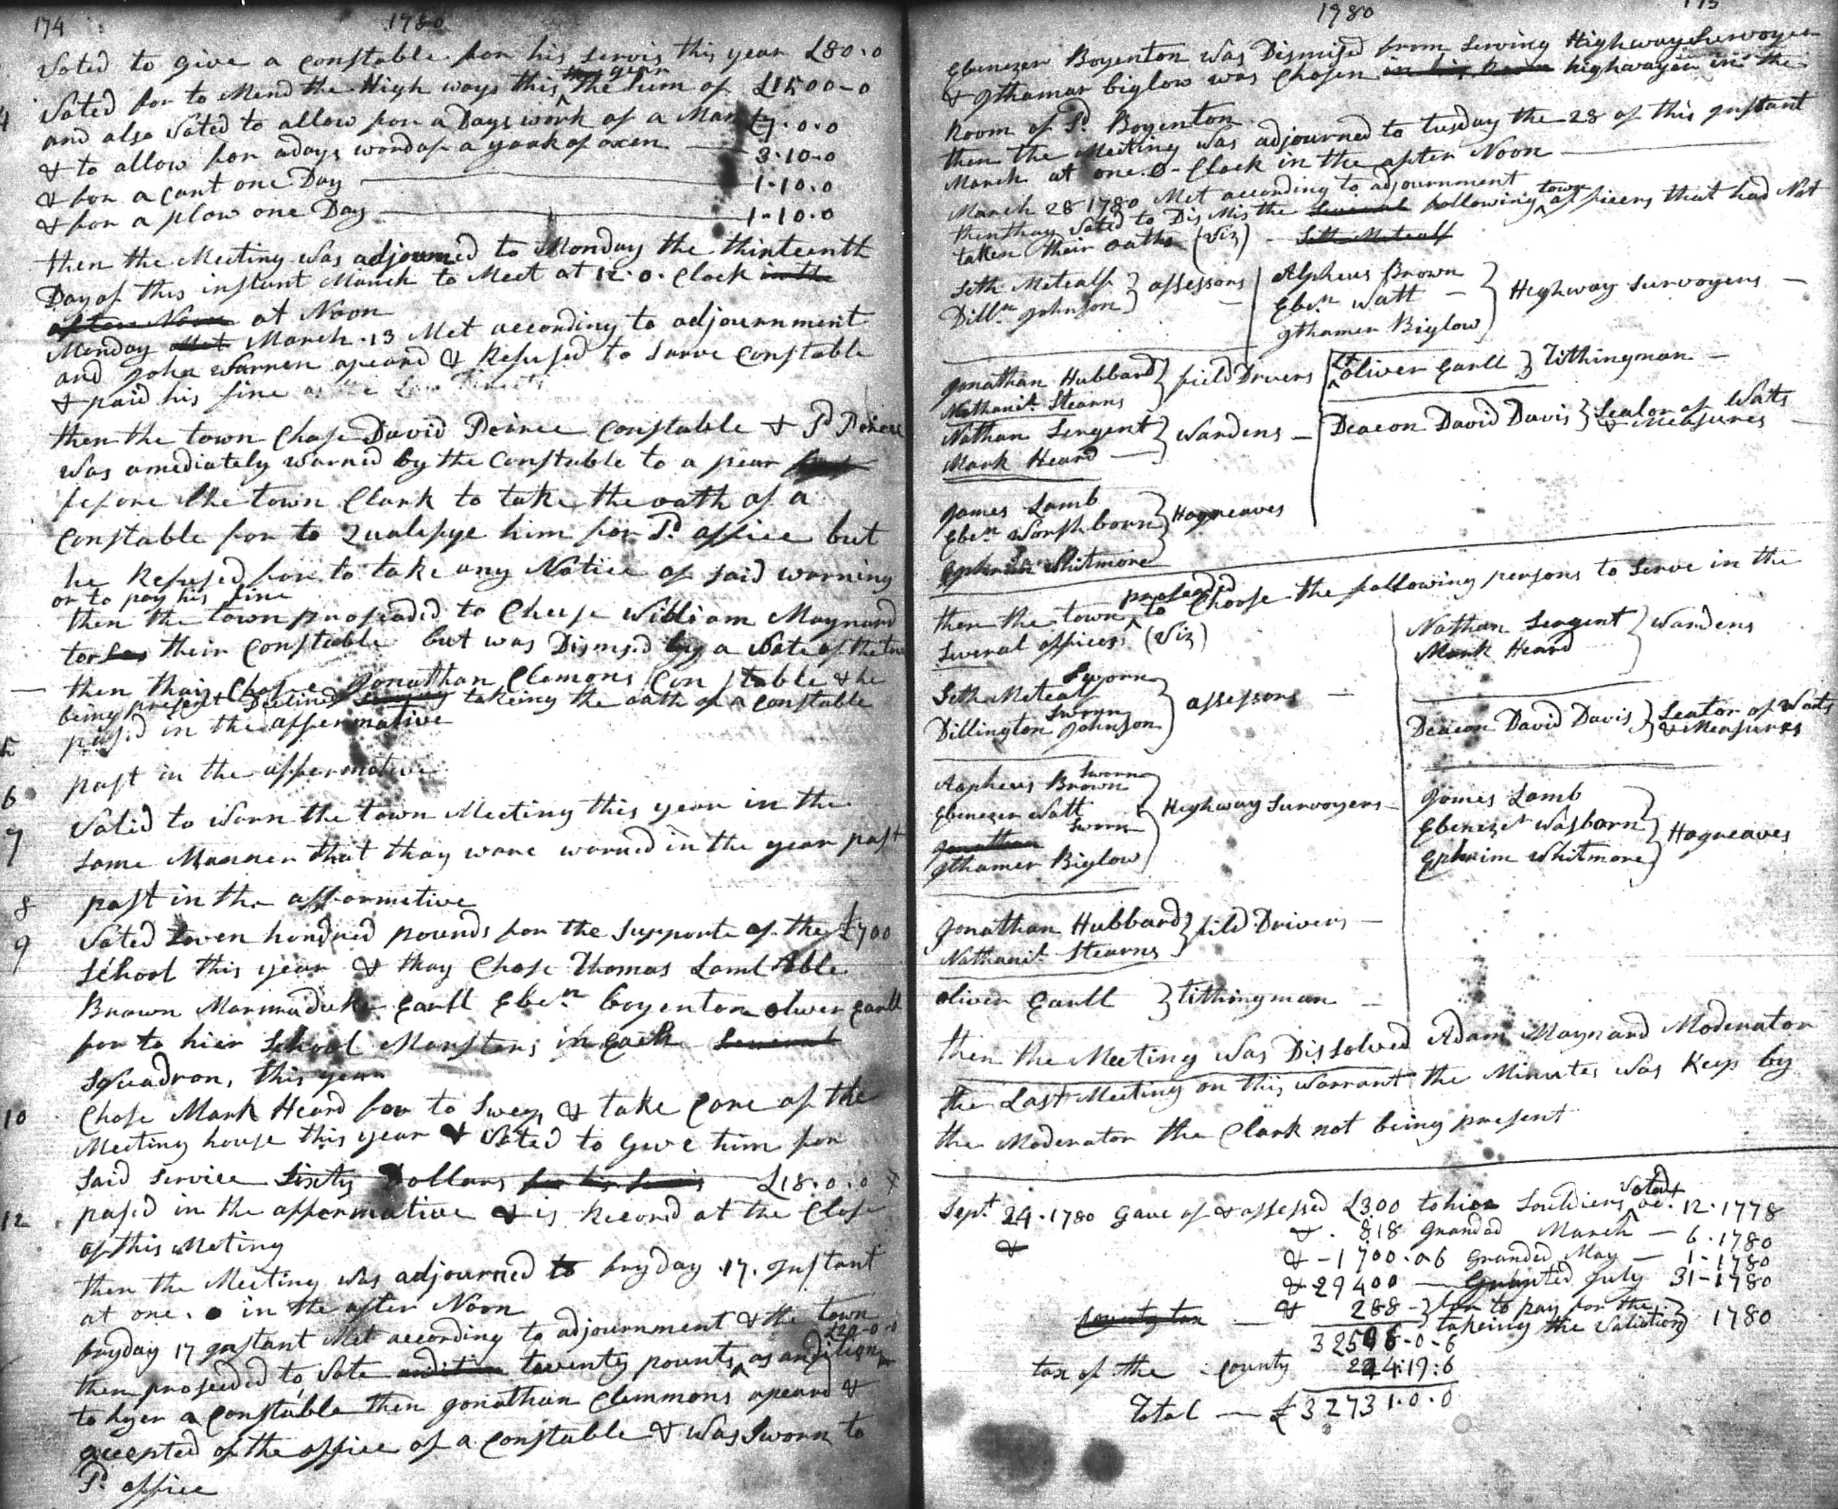 174 1780
Voted to give a Constable for his servis this year £80-0
4 Voted for to Mend the High ways this year the Sum of £1500-0
and also Voted to allow for a Days work of a Man £7-0-0
& to allow for a days word of a yoak of oxen 3-10-0
& for a cart one Day 1-10-0
& for a plow one Day 1-10-0
then the Meeting was adjourned to Monday the thirteenth
Day of this instant March to Meet at 12-o-Clock in the
after Noon at Noon
Monday Met March 13 Met according to adjournment
and John Warren apeard & Refused to Sarve Constable
& paid his fine
then the town Chose David Peirce Constable & Sd Peirce
was amediately warned by the Constable to a pear
before the town Clark to take the oath of a
Constable for to Qualefye him for Sd office but
he Refused for to take any Notice of said warning
or to pay his fine
then the town proseaded to Cheuse William Maynard
for their Constable but was Dismisd by a Vote of the tow
then thay Chose Jonathan Clemons Constable & he
being present Declined takeing the oath of a Constable
5 pased in the affermative
6 past in the affermative
7 Voted to Warn the town Meeting this year in the
same Manner that thay ware warned in the year past
8 past in the afformetive
9 Voted Seven hondred pounds for the Supporte of the £700
School this year & thay Chose Thomas Lamb Able
Brown Marmaduke Earll Eben Boyenton oliver Earll
for to hier School Marsters in Each Several
Squadron, this year
10 Chose Mark Heard for to Sweep & take Care of the
Meeting house this year & Voted to Give him for
said Service Sixty Dollars £18-0-0
12 pased in the affermative & is Record at the Close
of this Meting
then the Meeting was adjourned to fryday 17 Instant
at one o in the after Noon
fryday 17 Instant Met according to adjournment & the town
£20-0-0
then proseeded to Vote twenty pounts as andition
to hyer a Constable then Jonathan Clemmons apeard &
accepted of the office of a Constable & was Sworn to
Sd office
1780 175
Ebenezer Boyenton was Dismised from Serving Highway Survoyer
& Ithamar biglow was Chosen highwayer in the
Room of Sd Boyenton
then the Meeting was adjourned to tusday the 28 of this Instant
March at one o-Clock in the after Noon
March 28 1780 Met according to adjournment
then thay Voted to Dis Mis the Several following town officers that had Not
taken their oaths (Viz) Seth Metcalf
Seth Metcalf } assessors
Dilln Johnson
Alpheus Brown
Eben Watt } Highway Survoyers
Ithamer Biglow
Jonathan Hubbard } field Drivers
Nathaniel Stearns
Lt oliver Earll } Tithingman
Nathan Sergent } Wardens
Mark Heard
Deacon David Davis } Sealor of Wats & Measures
James Lamb
Eben Worshborn } Hogreaves
Ephraim Whitmore
then the town proseaded to Choose the following persons to Serve in the
Several offices (Viz)
Seth Metcalf Sworn } assessors
Dillington Johnson Sworn
Alpheus Brown Sworn
Ebenezer Watt } Highway Survoyers
Jonathan Sworn
Ithamer Biglow
Jonathan Hubbard } fild Drivers
Nathaniel Stearns
oliver Earll } tithingman
Nathan Sergent } Wardens
Mark Heard
Deacon David Davis } Sealor of Wats & Measures
James Lamb
Ebenezer Wasborn } Hogreaves
Ephraim Whitmore
then the Meeting was Dissolved Adam Maynard Moderator
the Last Meeting on this warrant the Minutes was Keep by
the Moderator the Clark not being present
Sept 24-1780 Gave of & assessed £300 to hier Souldiers Voted 12-1778
& 818 Granded March 6-1780
& -1700-06 Granded May 1-1780
& 29400 Granted July 31-1780
County tax & 288 for to pay for the takeing the Valiation 1780
32506-0-6
tax of the County 224:19:6
Total £32731-0-0